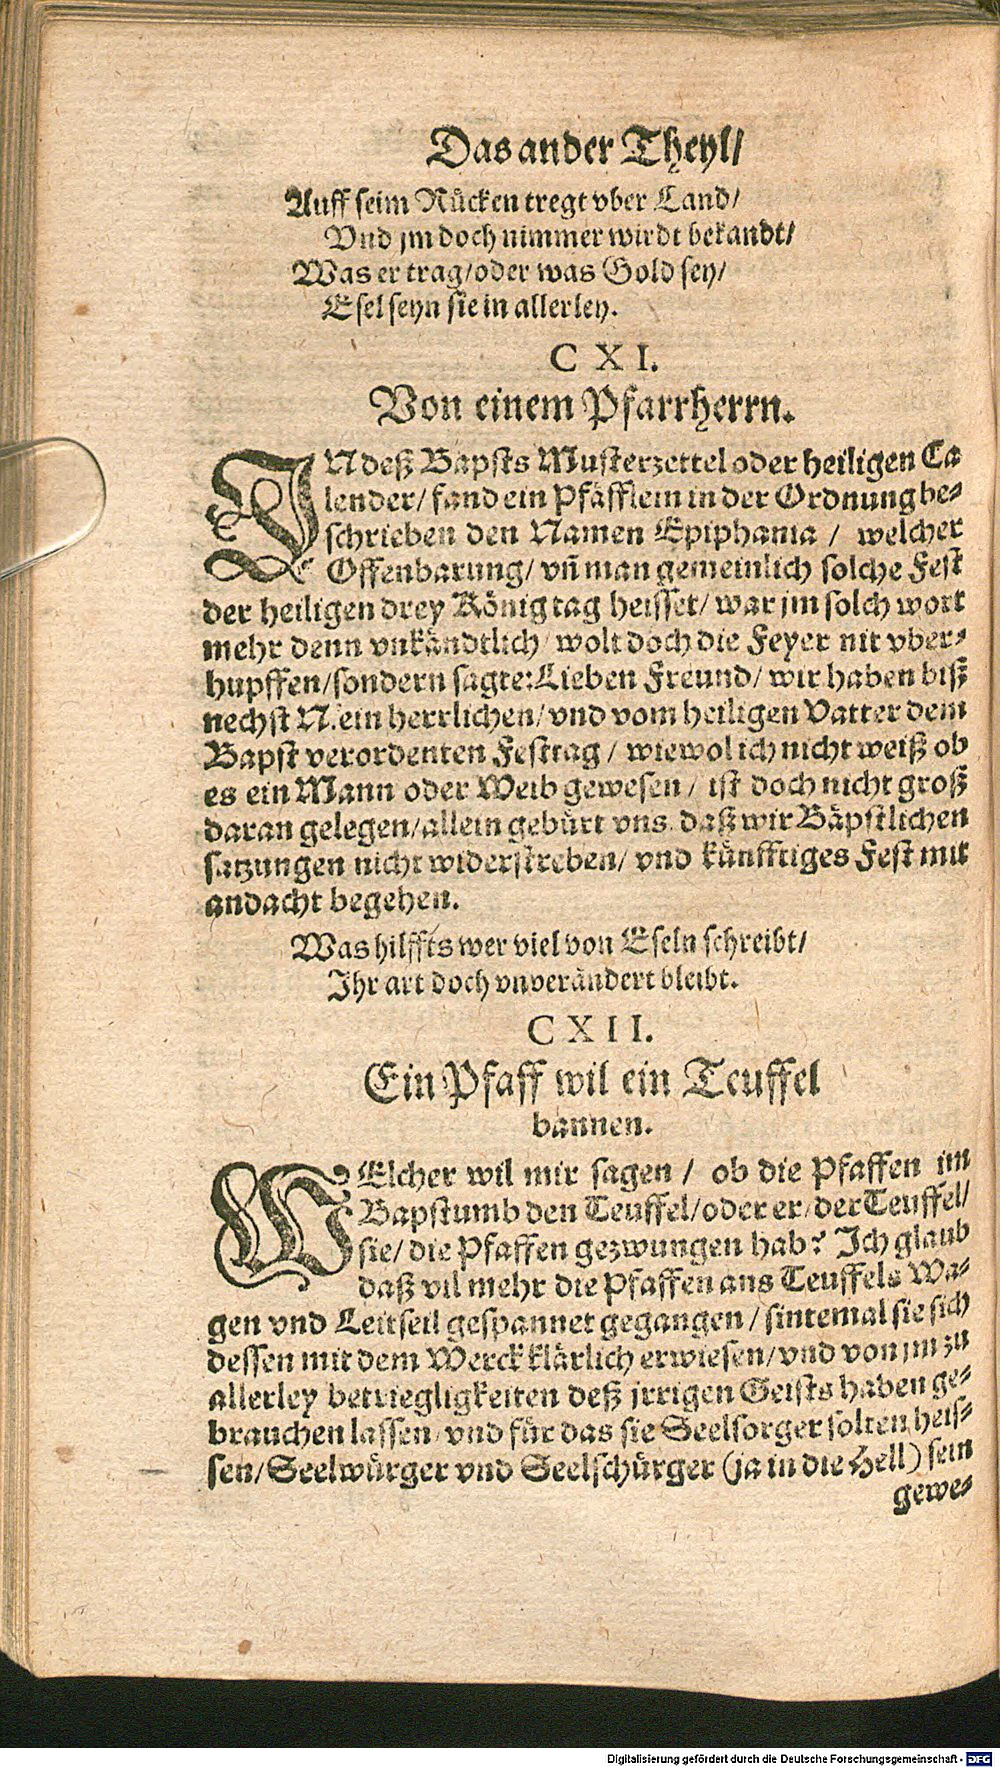 Das ander Theyl/
Auff seim Rücken tregt vber Land/
Vnd jm doch nimmer wirdt bekandt/
Was er trag/oder was Gold sey/
Esel seyn sie in allerley.
CXI.
Von einem Pfarrherrn.
IN deß Bapsts Musterzettel oder heiligen Ca
lender/ fand ein Pfäfflein in der Ordnung be-
schrieben den Namen Epiphania / welcher
Offenbarung/ vñ man gemeinlich solche Fest
der heiligen drey König tag heisset/ war jm solch wort
mehr denn vnkändtlich/ wolt doch die Feyer nit vber-
hupffen/sondern sagte: Lieben Freund/ wir haben biß
nechst N. ein herrlichen/ vnd vom heiligen Vatter dem
Bapst verordenten Festtag / wiewol ich nicht weiß ob
es ein Mann oder Weib gewesen / ist doch nicht groß
daran gelegen/allein gebürt vns daß wir Bäpstlichen
satzungen nicht widerstreben/ vnd künfftiges Fest mit
andacht begehen.
Was hilffts wer viel von Eseln schreibt/
Ihr art doch vnverändert bleibt.
CXII.
Ein Pfaff wil ein Teuffel
bannen.
WElcher wil mir sagen / ob die Pfaffen im
Bapstumb den Teuffel/oder er/ der Teuffel/
sie/ die Pfaffen gezwungen hab? Ich glaub
daß vil mehr die Pfaffen ans Teuffels Wa-
gen vnd Leitseil gespannet gegangen / sintemal sie sich
dessen mit dem Werck klärlich erwiesen/ vnd von jm zu
allerley betriegligkeiten deß jrrigen Geists haben ge-
brauchen lassen/ vnd für das sie Seelsorger solten heis-
sen/ Seelwürger vnd Seelschürger (ja in die Hell) sein
gewe-
Digitalisierung gefördert durch die Deutsche Forschungsgemeinschaft - DFG